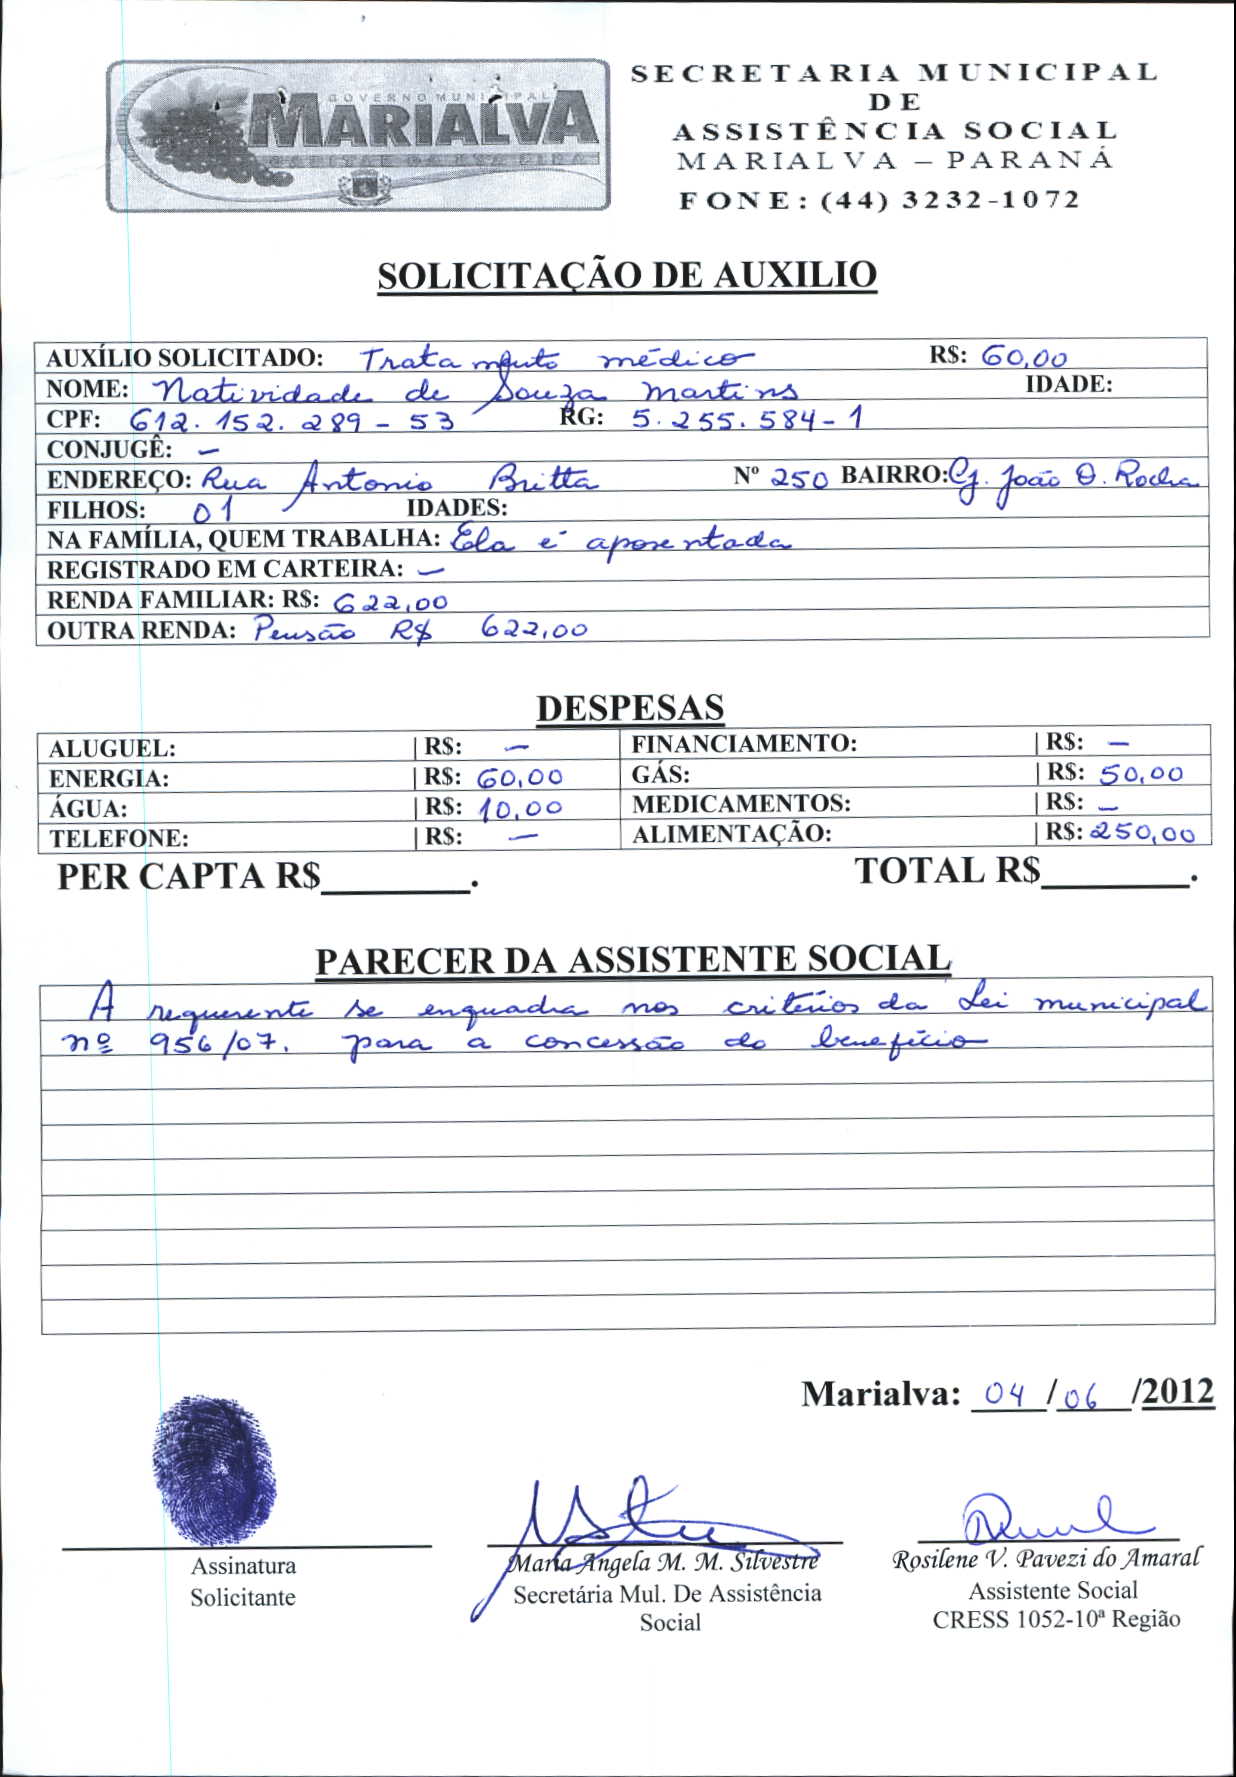 GOVERNO MUNICIPAL
MARIALVA
CAPITAL DA UVA FINA
SECRETARIA MUNICIPAL
DE
ASSISTÊNCIA SOCIAL
MARIALVA – PARANÁ
FONE: (44) 3232-1072
SOLICITAÇÃO DE AUXILIO
AUXÍLIO SOLICITADO: Tratamento médico R$: 60,00
NOME: Natividade de Souza Martins IDADE:
CPF: 612.152.289-53 RG: 5.255.584-1
CONJUGÊ: –
ENDEREÇO: Rua Antonio Britta Nº 250 BAIRRO: Cj. João O. Rocha
FILHOS: 01 IDADES:
NA FAMÍLIA, QUEM TRABALHA: Ela é aposentada
REGISTRADO EM CARTEIRA: –
RENDA FAMILIAR: R$: 622,00
OUTRA RENDA: Pensão R$ 622,00
DESPESAS
ALUGUEL: | R$: – FINANCIAMENTO: | R$: –
ENERGIA: | R$: 60,00 GÁS: | R$: 50,00
ÁGUA: | R$: 10,00 MEDICAMENTOS: | R$: –
TELEFONE: | R$: – ALIMENTAÇÃO: | R$: 250,00
PER CAPTA R$________. TOTAL R$________.
PARECER DA ASSISTENTE SOCIAL
A requerente se enquadra nos critérios da Lei municipal
nº 956/07. para a concessão do benefício
Marialva: 04/06/2012
Assinatura
Solicitante
Maria Angela M. M. Silvestre
Secretária Mul. De Assistência
Social
Rosilene V. Pavezi do Amaral
Assistente Social
CRESS 1052-10ª Região